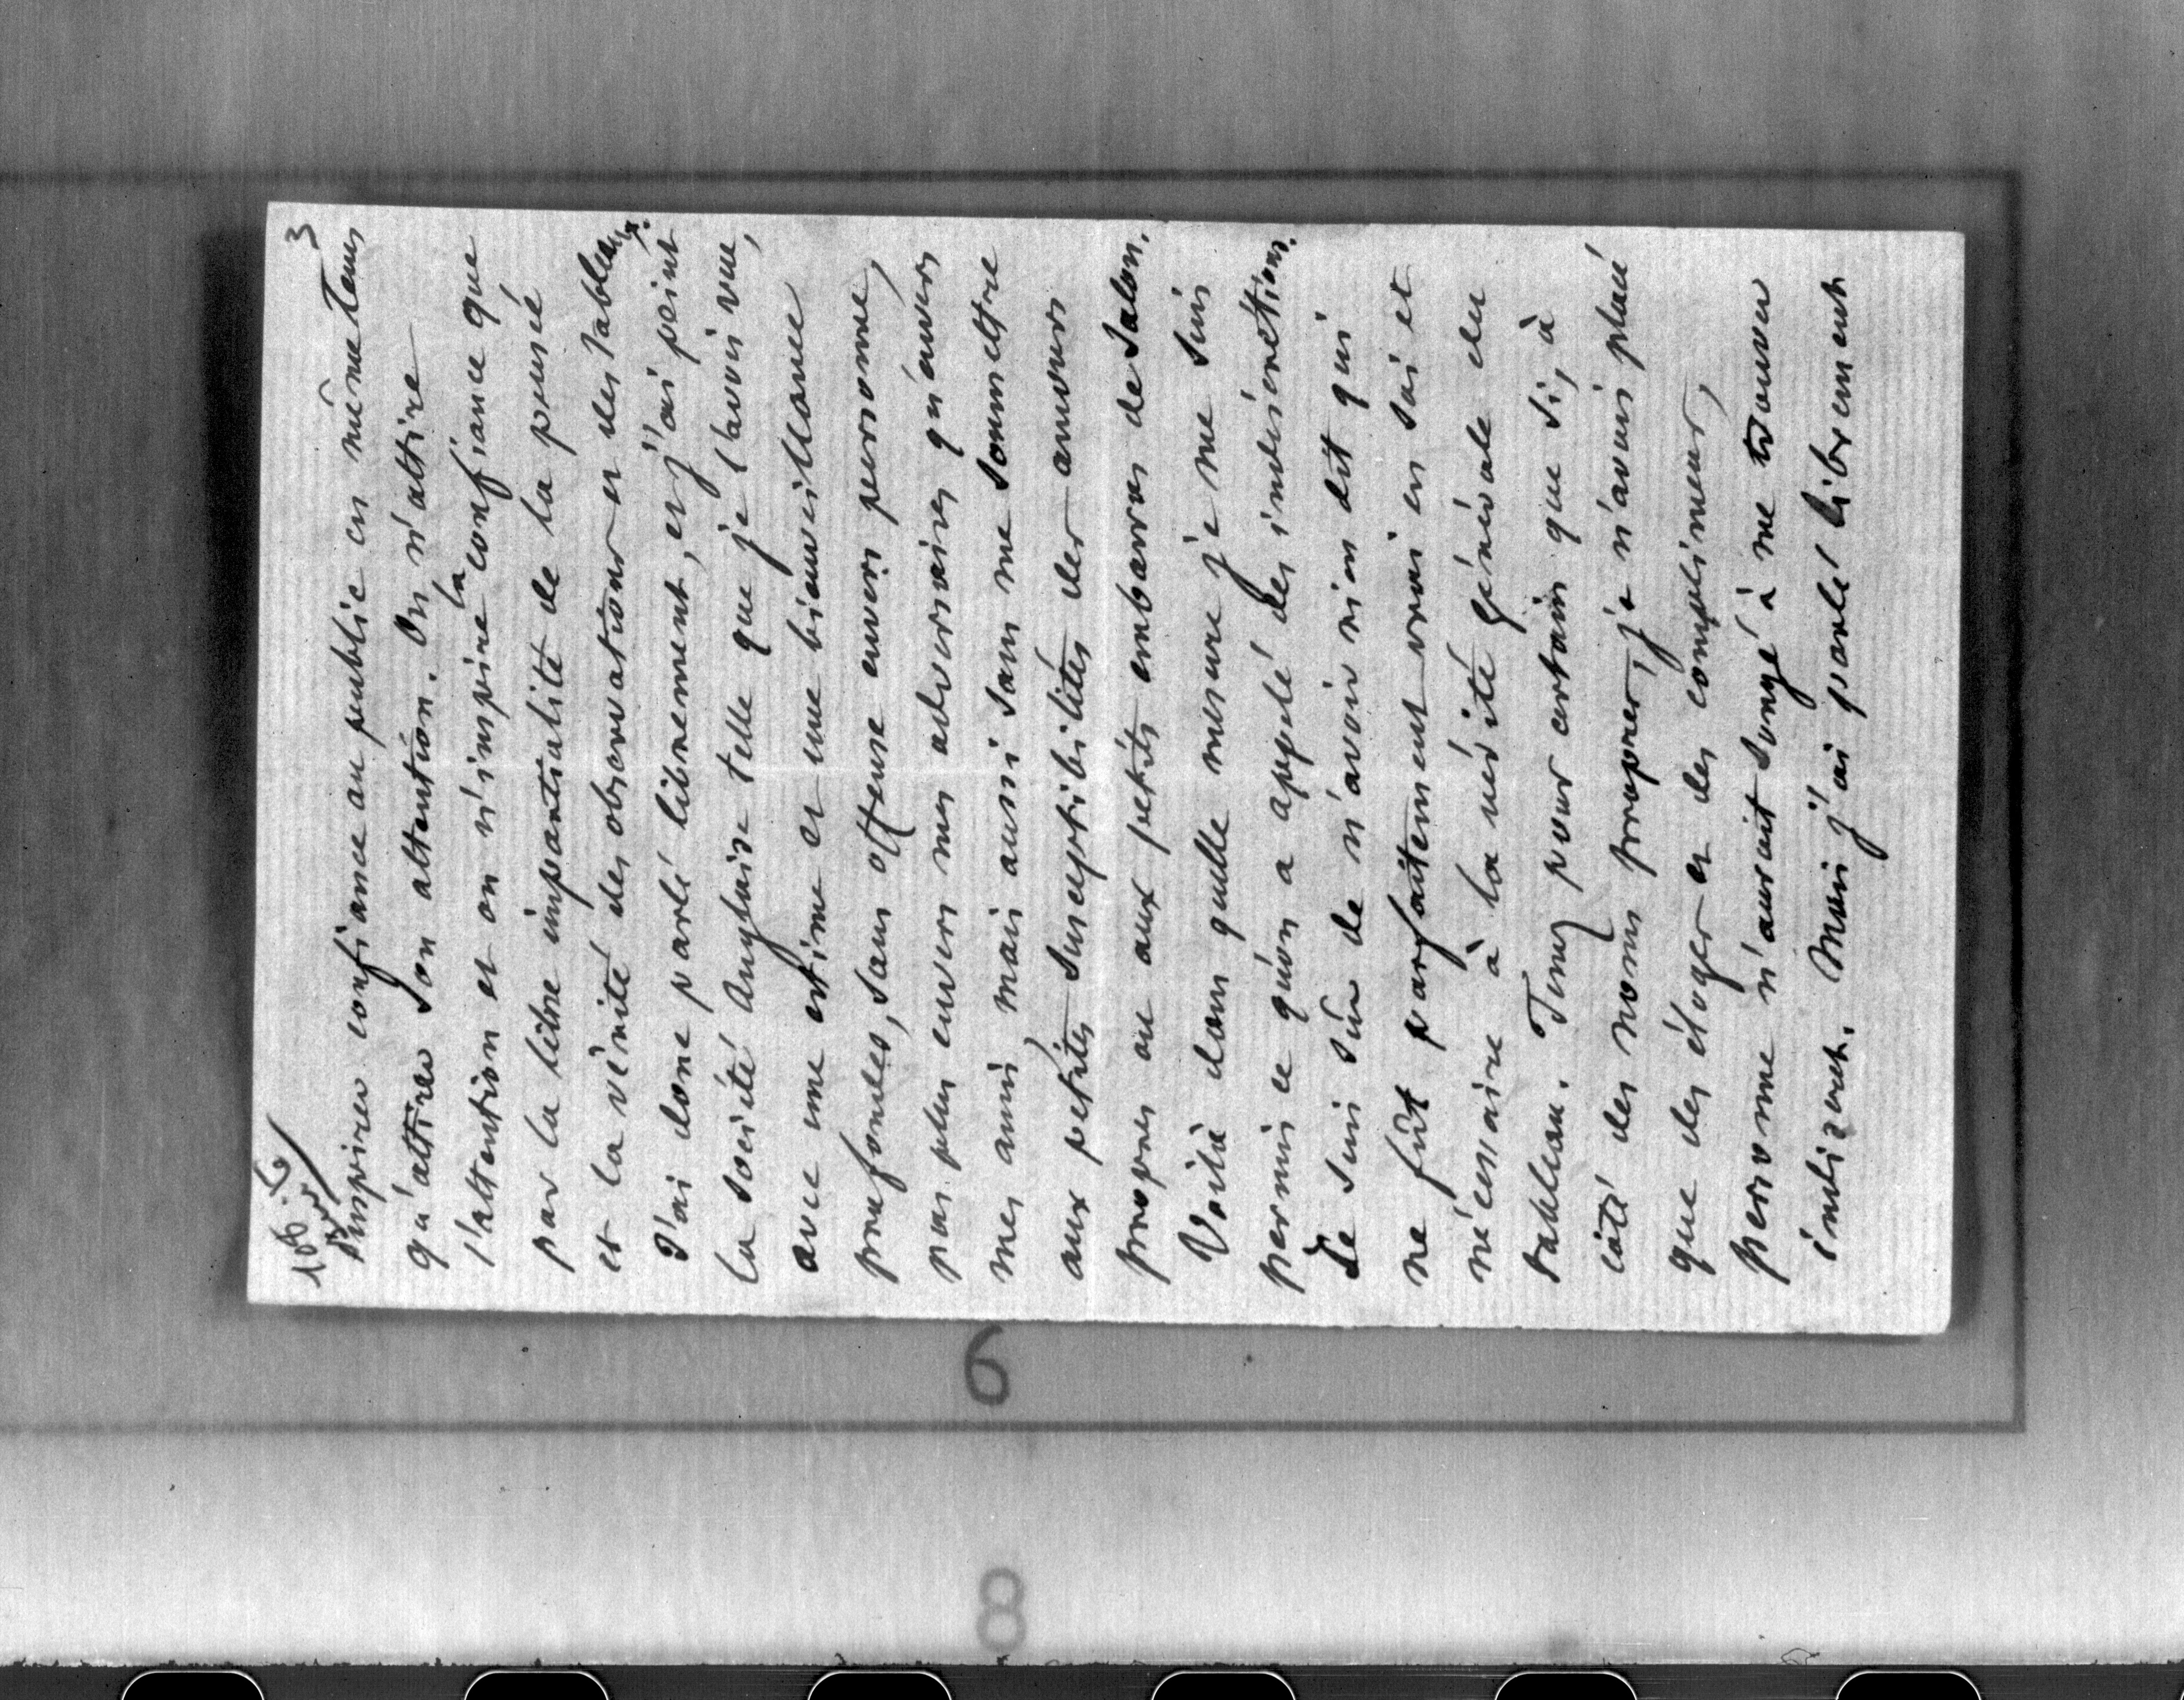 106 bis
3
Inspirer confiance au public en même tems
qu'attirer son attention. On n'attire
l'attention et on n'inspire la confiance que
par la libre impartialité de la pensée
et la vérité des observations et des tableaux.
J'ai donc parlé librement, et j'ai peint
la société Anglaise telle que je l'avois vue,
avec une estime et une bienveillance
profondes, sans offense envers personne,
pas plus envers mes adversaires qu'envers
mes amis, mais aussi sans me soumettre
aux petites susceptibilités des amours
propres ou aux petits embarras de salon.
Voilà dans quelle mesure je me suis
permis ce qu'on a appelé des indiscrétions.
Je suis sûr de n'avoir rien dit qui
ne fût parfaitement vrai en soi et
nécessaire à la vérité générale du
tableau. Tenez pour certain que si, à
côté des noms propres, je n'avais placé
que des éloges et des complimens,
personne n'aurait songé à me trouver
indiscret. Mais j'ai parlé librement
6
8